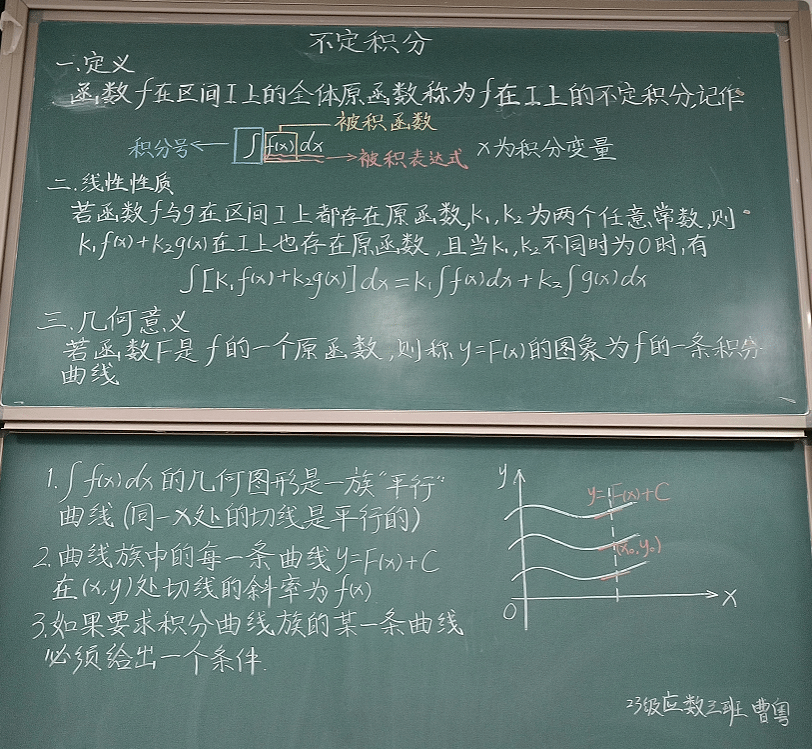 不定积分
一.定义
函数f在区间I上的全体原函数称为f在I上的不定积分,记作
被积函数
积分号 ∫f(x)dx 被积表达式 x为积分变量
二.线性性质
若函数f与g在区间I上都存在原函数,k₁,k₂为两个任意常数,则
k₁f(x)+k₂g(x)在I上也存在原函数,且当k₁,k₂不同时为0时,有
∫[k₁f(x)+k₂g(x)]dx=k₁∫f(x)dx+k₂∫g(x)dx
三.几何意义
若函数F是f的一个原函数,则称y=F(x)的图象为f的一条积分
曲线
1.∫f(x)dx的几何图形是一族"平行"
曲线(同一x处的切线是平行的)
2.曲线族中的每一条曲线y=F(x)+C
在(x,y)处切线的斜率为f(x)
3.如果要求积分曲线族的某一条曲线
必须给出一个条件.
y
y=F(x)+C
(x₀,y₀)
O
x
23级应数三班 曹粤